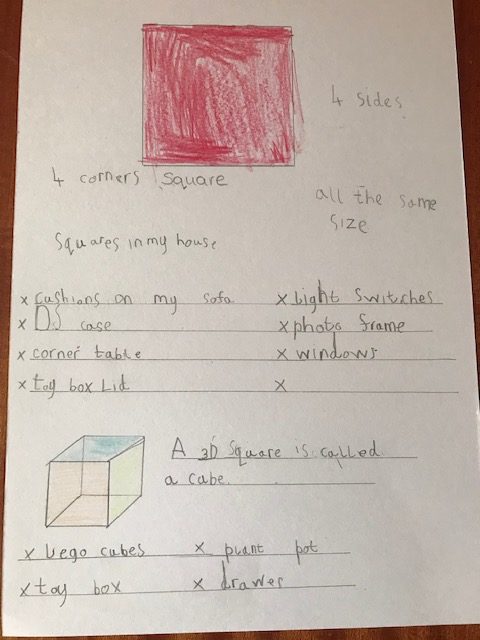 4 sides
4 corners square
all the same
size
Squares in my house
x cushions on my sofa x Light switches
x DS case x photo frame
x corner table x windows
x toy box Lid x
A 3D square is called
a cube.
x Lego cubes x plant pot
x toy box x drawer